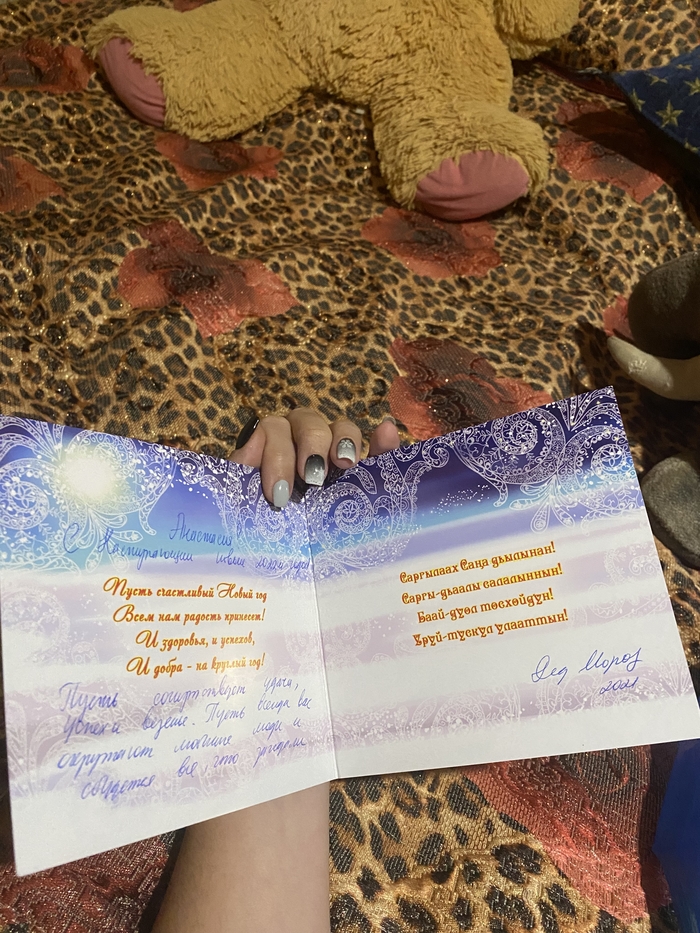 Анастасия
С Наступающим новым
Пусть счастливый Новый год
Всем нам радость принесет!
И здоровья, и успехов,
И добра - на круглый год!
Пусть сопутствует удача,
успех и везение. Пусть всегда вас
окружают люди и
сбудется все, что
Саргылаах Саҥа дьылынан!
Саргы-дьаалы салалыннын!
Баай-дуол төсхөйдүн!
Уруй-тускул улааттын!
Дед Мороз
2021